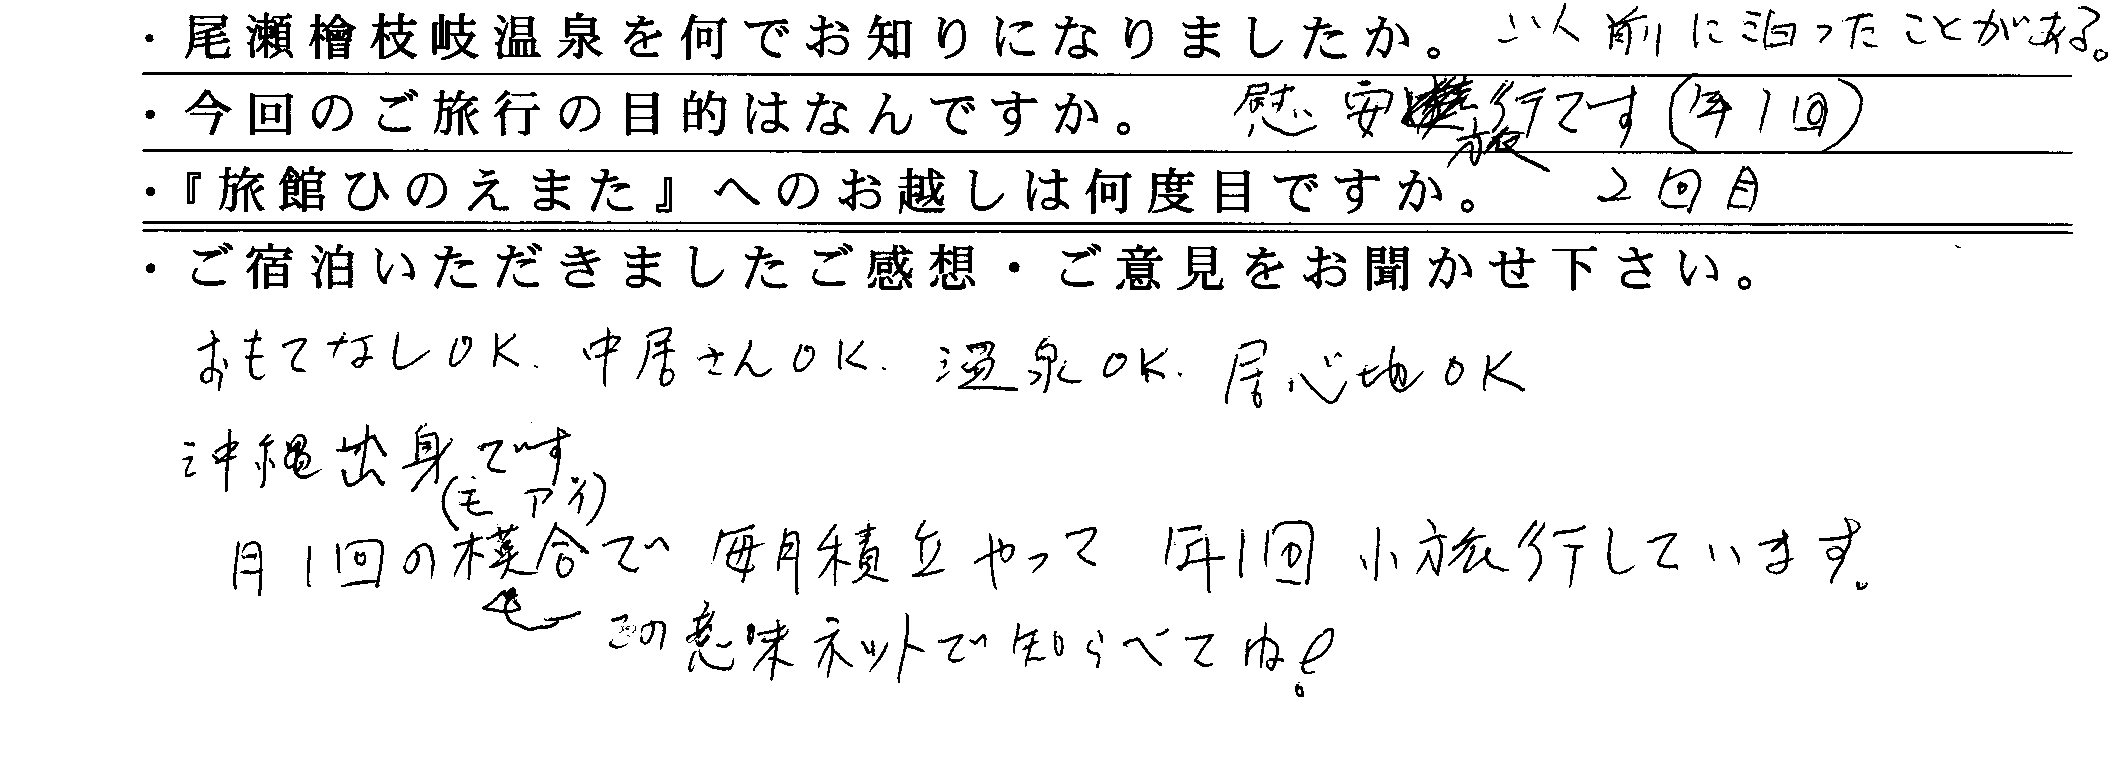 ・尾瀬檜枝岐温泉を何でお知りになりましたか。 以前に泊ったことがある。
・今回のご旅行の目的はなんですか。 慰安旅行です(年1回)
・『旅館ひのえまた』へのお越しは何度目ですか。 2回目
・ご宿泊いただきましたご感想・ご意見をお聞かせ下さい。
おもてなしOK. 中居さんOK. 温泉OK. 居心地OK
沖縄出身です
(モアイ)
月1回の模合で 毎月積立やって 年1回 小旅行しています。
この意味ネットで知らべてね!